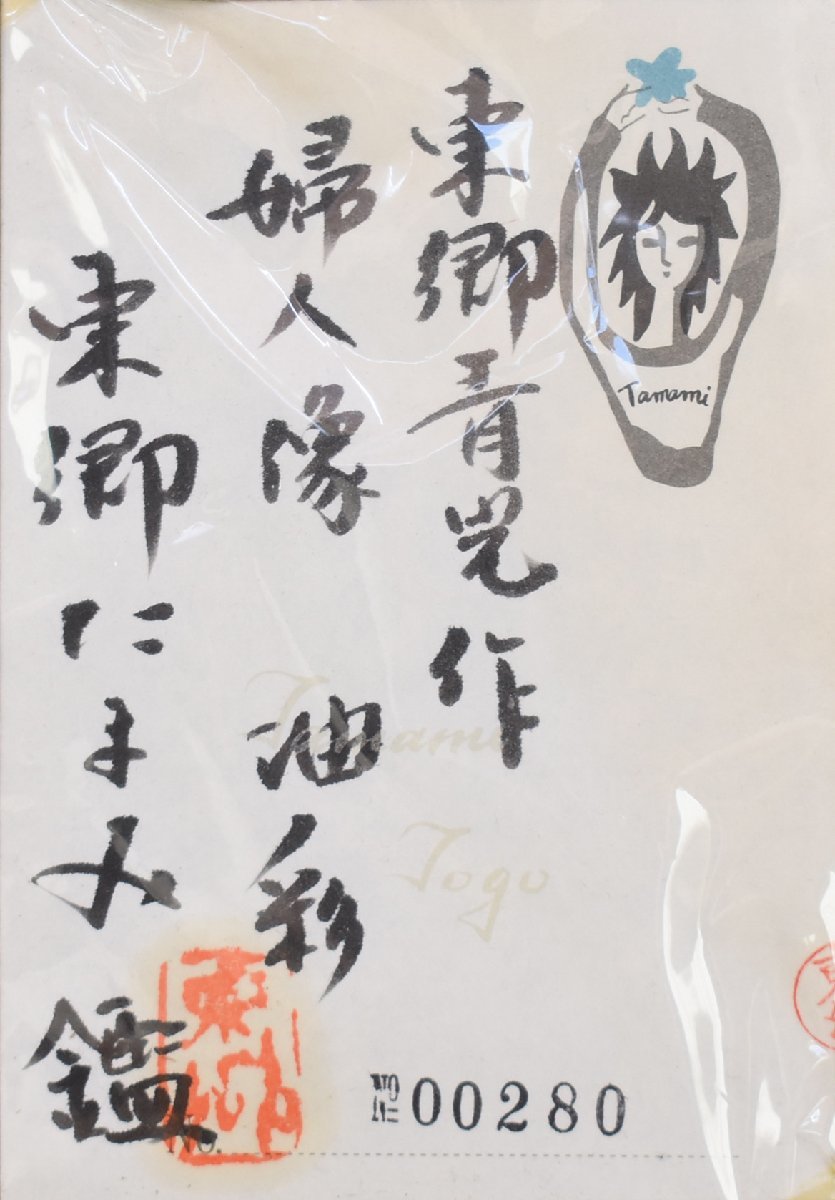 東郷青児作
婦人像 油彩
東郷たまみ鑑
Tamami
Tamami
Togo
No 00280
No.